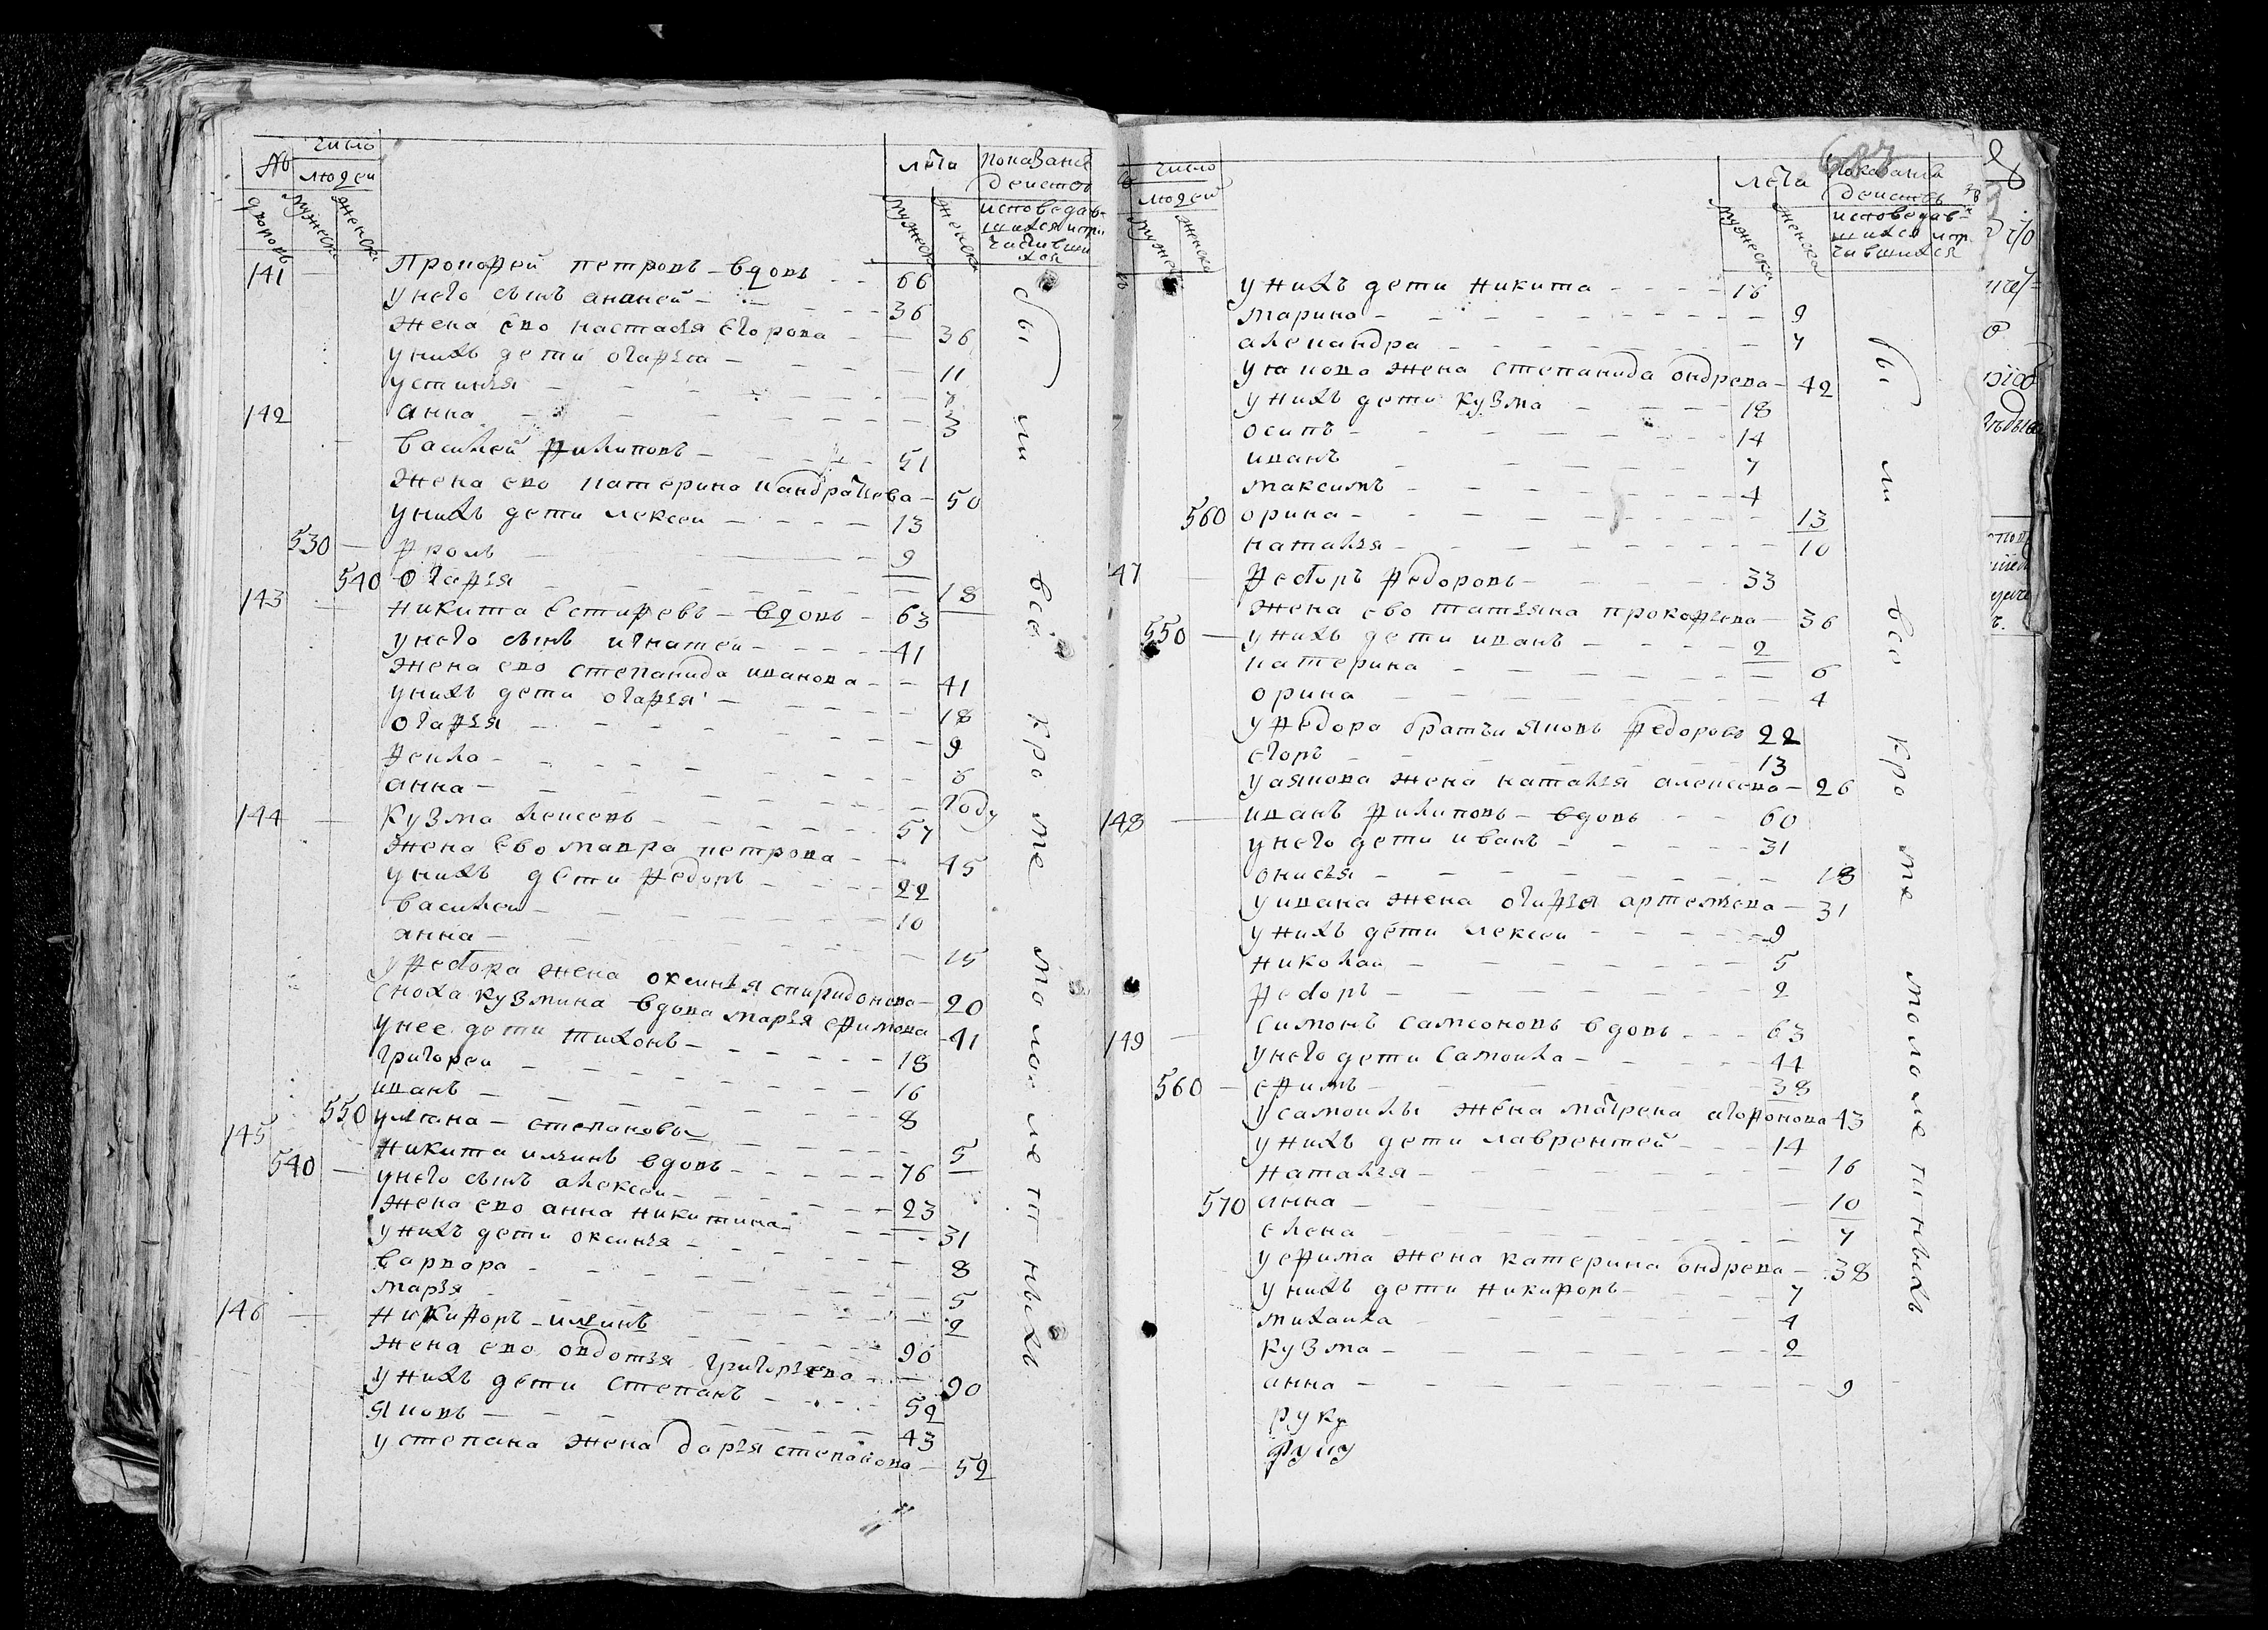 № число лѣта показание
людей действъ
дворовъ мужеска женска мужеска женска исповедав-
шихся и при
чаʼстивши
хся
141 Прокофей петровъ - вдовъ - 66
у него сынъ ананей - 36
жена ево настасья егорова - 36
у нихъ дети огафья - 11
устинья - 7
анна - 3
142 василей филиповъ - 51
жена ево катерина кандратьева - 50
у нихъ дети лексеи - 13
530 - фролъ - 9
540 огафья - 18
143 никита естифеевъ - вдовъ - 63
у него сынъ игнатеи - 41
жена ево степанида иванова - 41
у нихъ дети огафья - 18
огафья - 9
фекла - 6
анна - году
144 кузма лексеевъ - 57
жена ево мавра петрова - 45
у нихъ дети федоръ - 22
василеи - 10
анна - 15
у федора жена оксинья спиридонова - 20
сноха кузмина вдова марья ефимова - 41
у нее дети тихонъ - 18
григореи - 16
иванъ - 8
550 ульяна - степановы - 5
145 никита ильинъ вдовъ - 76
540 - у него сынъ алексеи - 23
жена ево анна никитина - 31
у нихъ дети оксинья - 8
варвора - 5
марья - 2
146 никифоръ - ильинъ - 90
жена ево овдотья григорьева - 90
у нихъ дети степанъ - 52
яковъ - 43
у степана жена дарья степанова - 52
были все кроме малолетныхъ
687
число лѣта показание
людей действъ
мужеска женска мужеска женска исповедав-
шихся и пр
чавшихся
у нихъ дети никита - 16
марина - 9
александра - 7
у якова жена степанида ондрева - 42
у нихъ дети кузма - 18
осипъ - 14
иванъ - 7
максимъ - 4
560 орина - 13
наталья - 10
147 федоръ федоровъ - 33
жена ево татьяна прокофьева - 36
550 - у нихъ дети иванъ - 2
катерина - 6
орина - 4
у федора братьи яковъ федоровъ 22
егоръ - 13
у якова жена наталья алексева - 26
148 иванъ филиповъ - вдовъ - 60
у него дети иванъ - 31
онисья - 18
у ивана жена огафья артемьева - 31
у нихъ дети лексеи - 9
николаи - 5
федоръ - 2
149 симонъ самсоновъ вдовъ - 63
у него дети самоила - 44
560 - ефимъ - 38
у самоилы жена матрена агофонова 43
у нихъ дети лаврентей - 14
наталья - 16
570 анна - 10
елена - 7
у ефима жена катерина ондрева - 38
у нихъ дети никифоръ - 7
михаила - 4
кузма - 2
анна - 9
руку
были все кроме малолетныхъ